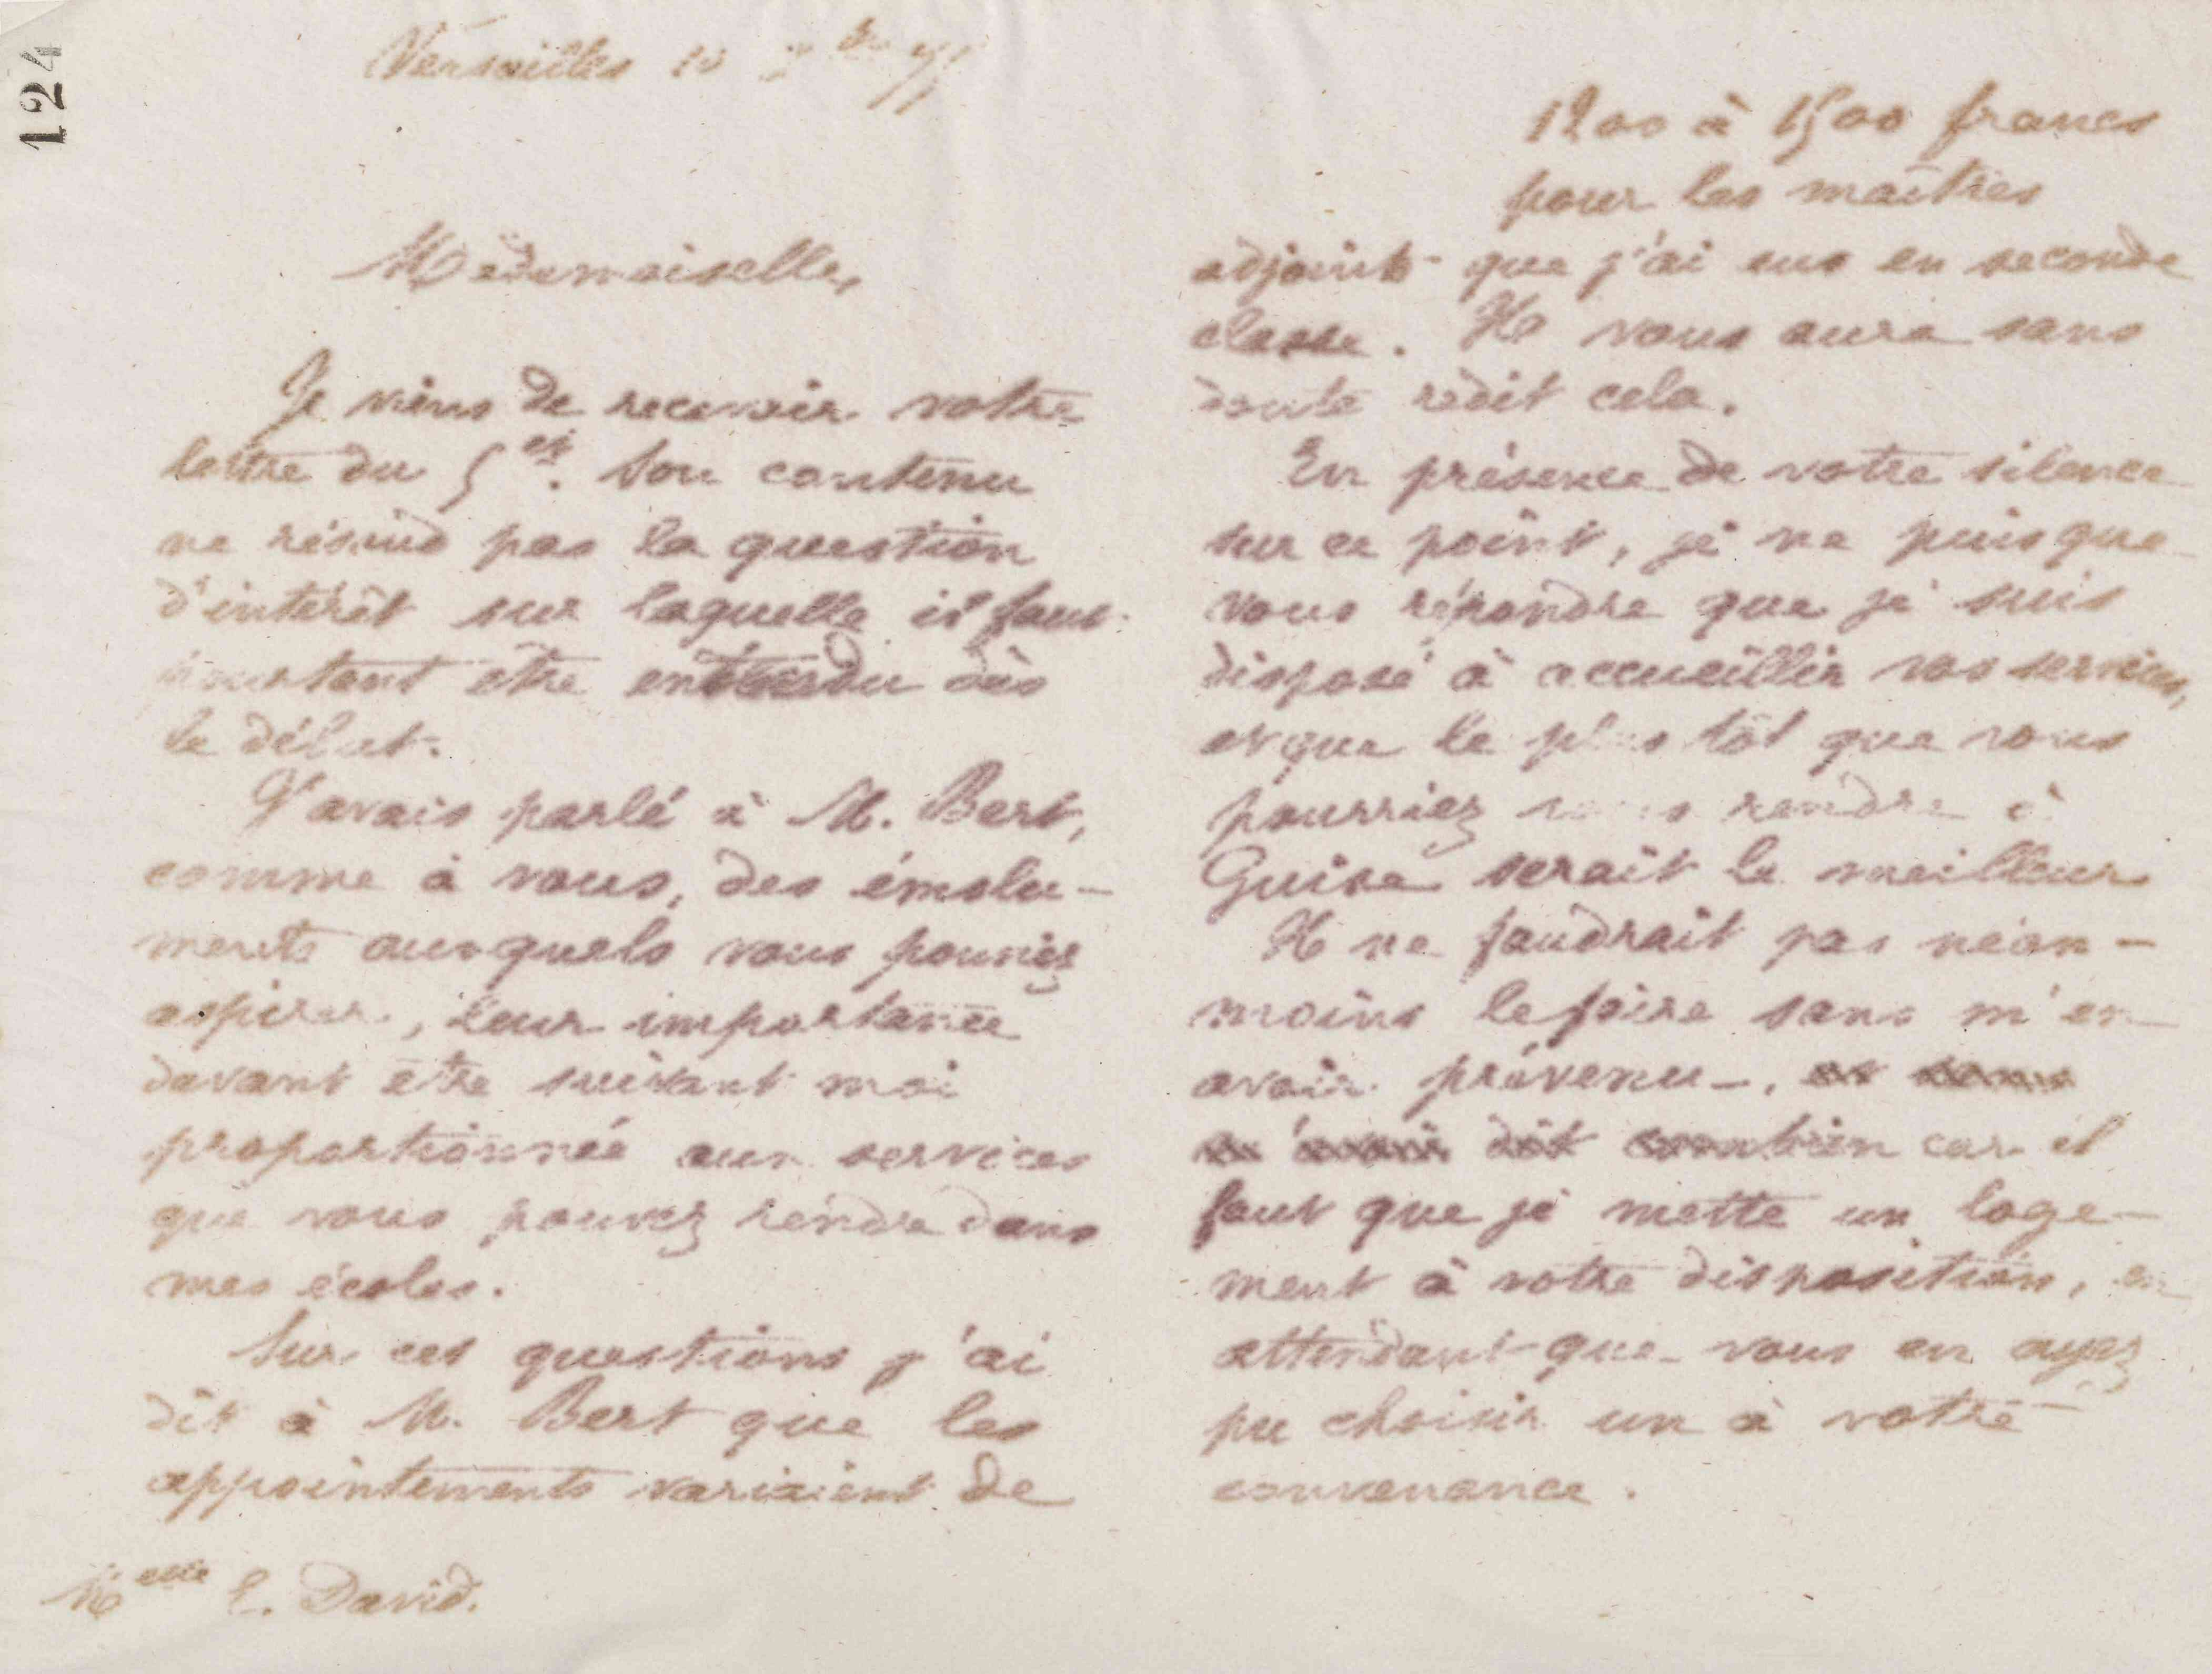 124
Versailles 10
Mademoiselle,
Je viens de recevoir votre
lettre du 5 ct. Son contenu
ne résoud pas la question
d'intérêt sur laquelle il faut
pourtant être entendu dès
le début.
J'avais parlé à M. Bert,
comme à vous, des émolu-
ments auxquels vous pouviez
aspirer, leur importance
devant être suivant moi
proportionnée aux services
que vous pouvez rendre dans
mes écoles.
Sur ces questions j'ai
dit à M. Bert que les
appointements variaient de
Melle E. David.
1200 à 1500 francs
pour les maîtres
adjoints que j'ai eus en seconde
classe. Il vous aura sans
doute redit cela.
En présence de votre silence
sur ce point, je ne puis que
vous répondre que je suis
disposé à accueillir vos services,
et que le plus tôt que vous
pourriez vous rendre à
Guise serait le meilleur
Il ne faudrait pas néan-
moins le faire sans m'en
avoir prévenu, et sans
m'avoir dit combien car il
faut que je mette un loge-
ment à votre disposition, en
attendant que vous en ayez
pu choisir un à votre
convenance.